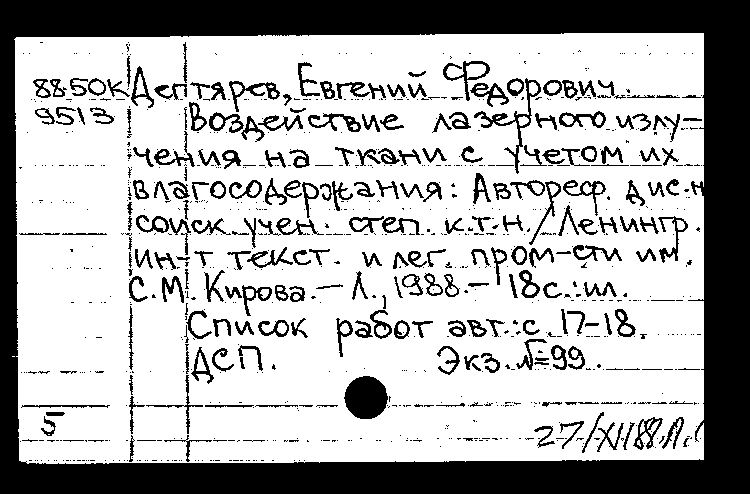 88-50К Дегтярев, Евгений Федорович.
9513 Воздействие лазерного излу-
чения на ткани с учетом их
влагосодержания: Автореф. дис. н
соиск. учен. степ. к.т.н./ Ленингр.
ин-т текст. и лег. пром-сти им.
С.М. Кирова.– Л., 1988.– 18с.:ил.
Список работ авт.:с. 17-18.
ДСП. Экз. №99.
5
27/XII 88